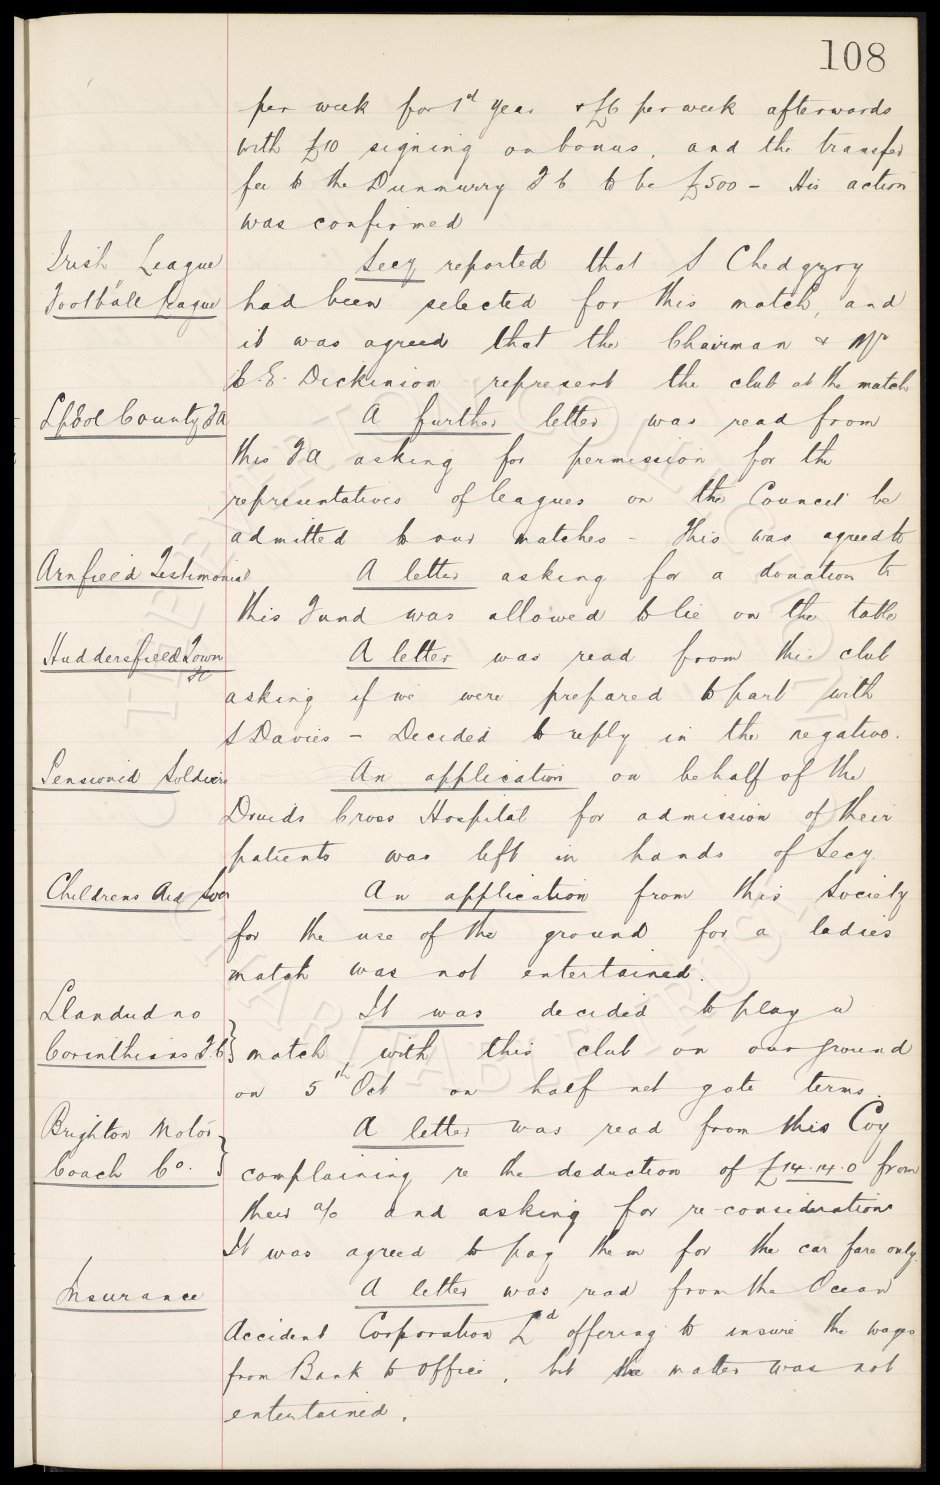 108
per week for 1st year & £6 per week afterwards
with £10 signing on bonus, and the transfer
fee to the Dunmurry F C to be £500 - His action
was confirmed
Irish League
Football League
Secy reported that S Chedgzoy
had been selected for this match, and
it was agreed that the Chairman & Mr
C. E. Dickinson represent the club at the match
Lpool County FA
A further letter was read from
this FA asking for permission for the
representatives of leagues on the Council be
admitted to our matches - This was agreed to
Arnfield Testimonial
A letter asking for a donation to
this Fund was allowed to lie on the table
Huddersfield Town
FC
A letter was read from this club
asking if we were prepared to part with
S Davies - Decided to reply in the negative.
Pensioned Soldiers
An application on behalf of the
Druids Cross Hospital for admission of their
patients was left in hands of Secy.
Childrens Aid Socy
An application from this Society
for the use of the ground for a ladies
match was not entertained.
Llandudno
Corinthians F C
It was decided to play a
match, with this club on our ground
on 5th Oct on half net gate terms.
Brighton Motor
Coach Co.
A letter was read from this Coy
complaining re the deduction of £14.14.0 from
their a/c and asking for re-consideration
It was agreed to pay them for the car fare only.
Insurance
A letter was read from the Ocean
Accident Corporation Ld offering to insure the wages
from Bank to office, but the matter was not
entertained.
THE EVERTON COLLECTION
CHARITABLE TRUST